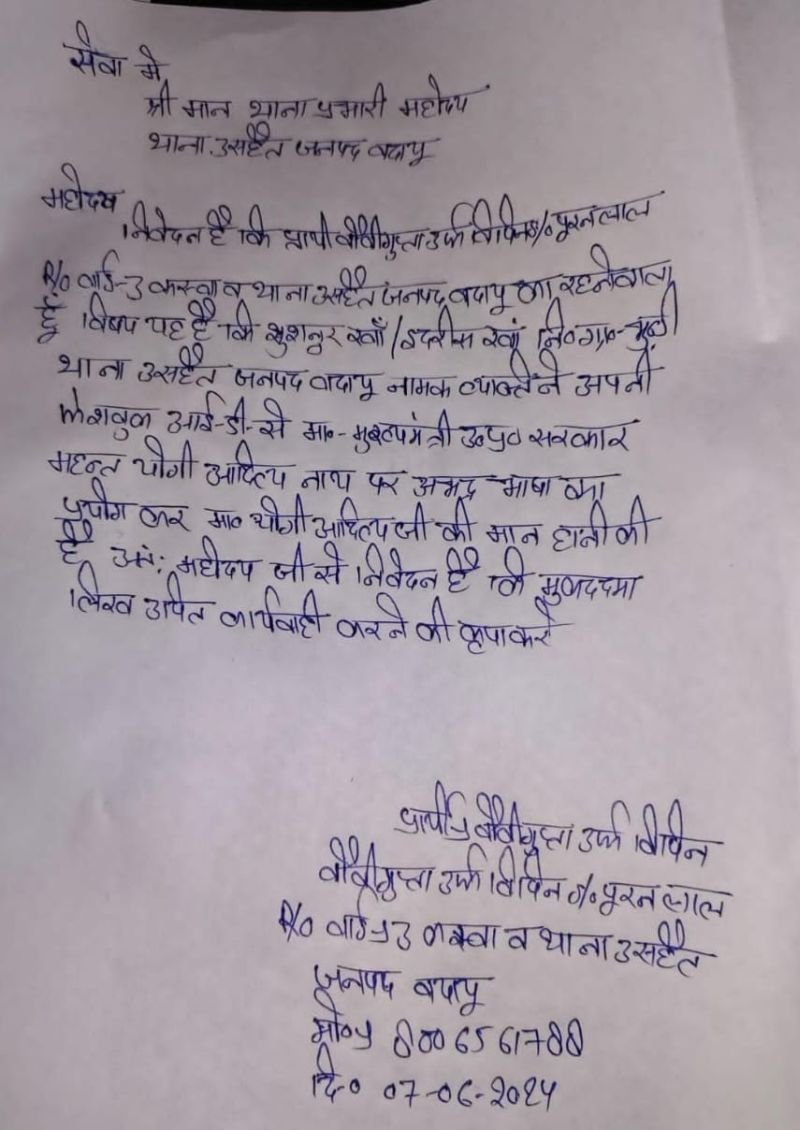 सेवा मे
श्री मान थाना प्रभारी महोदय
थाना उसहैत जनपद बदायू
महोदय
निवेदन है कि प्रार्थी बौबी गुप्ता उर्फ विपिन S/० पूरन लाल
R/० वार्ड-3 कस्वा व थाना उसहैत जनपद बदायू का रहने वाला
हूँ विषय यह है कि खाँ / खां नि०ग्रा०-
थाना उसहैत जनपद बदायू नामक व्यक्ति ने अपनी
फेशबुक आई-डी-से मा०-मुख्यमंत्री उ०प्र० सरकार
महन्त योगी आदित्य नाथ पर अभद्र भाषा का
प्रयोग कर मा० योगी आदित्य जी की मान हानी की
है अतः महोदय जी से निवेदन है कि मुकददमा
लिख उचित कार्यवाही करने की कृपा करें
प्रार्थी बौबी गुप्ता उर्फ विपिन
बौबी गुप्ता उर्फ विपिन S/० पूरन लाल
R/० वार्ड 3 कस्वा व थाना उसहैत
जनपद बदायू
मो० 8006561788
दि० 07-06-2024